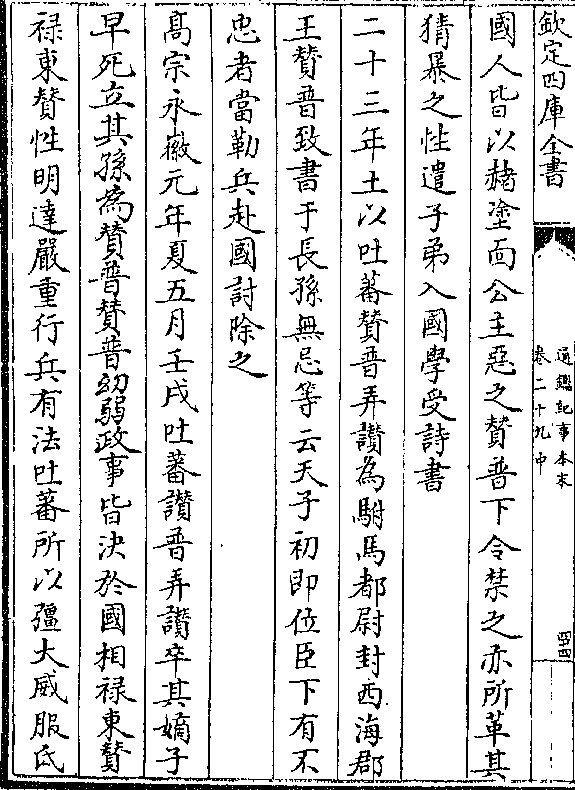 欽定四庫全書
通鑑紀事本末
卷二十九中
四四
國人皆以赭塗面公主惡之贊普下令禁之亦所革其
猜暴之性遣子弟入國學受詩書
二十三年土以吐蕃贊普弄讃為駙馬都尉封西海郡
王贊普致書于長孫無忌等云天子初即位臣下有不
忠者當勒兵赴國討除之
髙宗永徽元年夏五月壬戌吐蕃讃普弄讃卒其嫡子
早死立其孫為贊普贊普幼弱政事皆決於國相禄東贊
禄東贊性明達嚴重行兵有法吐蕃所以彊大威服氐